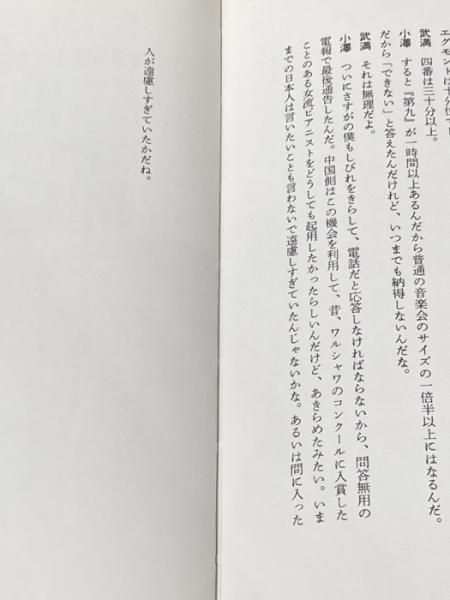 エグモントは十分位で
武満　四番は三十分以上。
小澤　すると『第九』が一時間以上あるんだから普通の音楽会のサイズの一倍半以上にはなるんだ。
だから「できない」と答えたんだけれど、いつまでも納得しないんだな。
武満　それは無理だよ。
小澤　ついにさすがの僕もしびれをきらして、電話だと応答しなければならないから、問答無用の
電報で最後通告したんだ。中国側はこの機会を利用して、昔、ワルシャワのコンクールに入賞した
ことのある女流ピアニストをどうしても起用したかったらしいんだけど、あきらめたみたい。いま
までの日本人は言いたいことも言わないで遠慮しすぎていたんじゃないかな。あるいは間に入った
人が遠慮しすぎていたかだね。